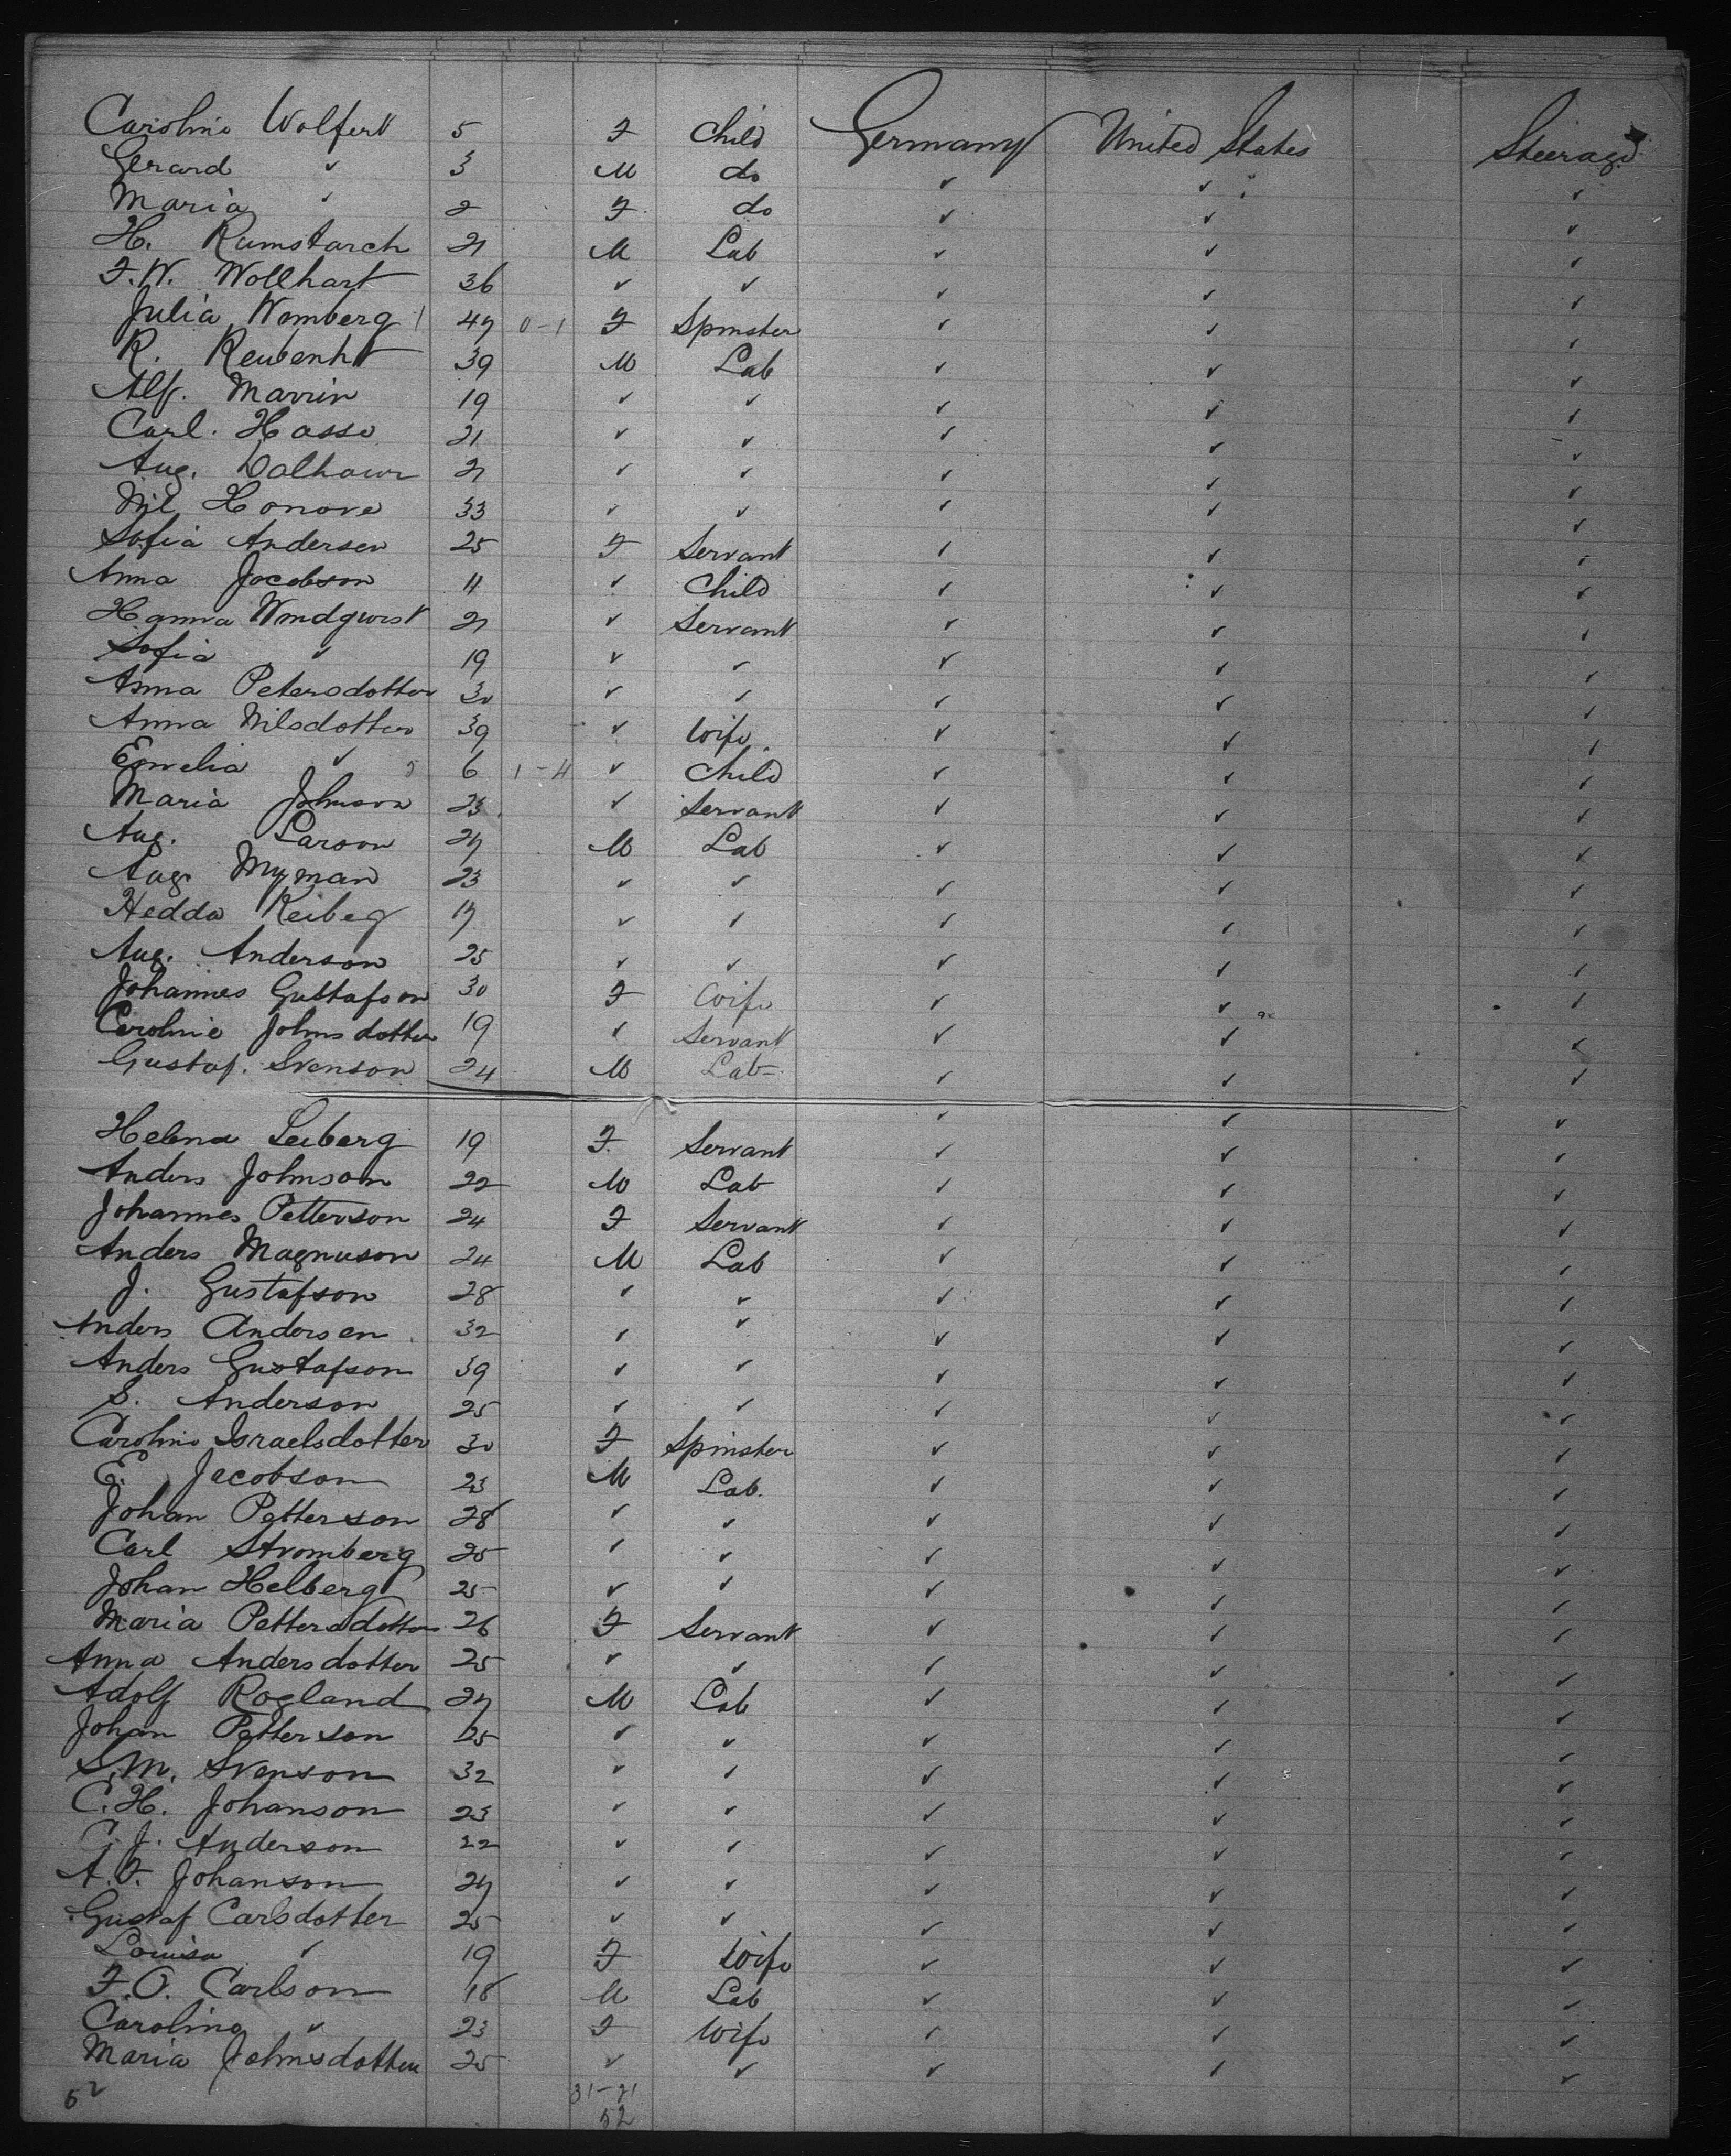 Caroline Wolfert 5 F Child Germany United States Steerage
Gerard ✓ 3 M do ✓ ✓ ✓
Maria ✓ 2 F do ✓ ✓ ✓
H. Rumstarch 21 M Lab ✓ ✓ ✓
F.W. Wollhart 36 ✓ ✓ ✓ ✓ ✓
Julia Womberg 47 0-1 F Spinster ✓ ✓ ✓
R. 39 M Lab ✓ ✓ ✓
Alf. Marrin 19 ✓ ✓ ✓ ✓ ✓
Carl. Hasse 21 ✓ ✓ ✓ ✓ ✓
Aug. 21 ✓ ✓ ✓ ✓ ✓
Nil Honore 33 ✓ ✓ ✓ ✓ ✓
Sofia Andersen 25 F Servant ✓ ✓ ✓
Anna Jacobson 11 ✓ Child ✓ ✓ ✓
Hanna Windqwist 21 ✓ Servant ✓ ✓ ✓
Sofia ✓ 19 ✓ ✓ ✓ ✓ ✓
Anna Petersdotter 30 ✓ ✓ ✓ ✓ ✓
Anna Nilsdotter 39 ✓ Wife ✓ ✓ ✓
Emelia ✓ 6 1-4 ✓ Child ✓ ✓ ✓
Maria Johnson 23 ✓ Servant ✓ ✓ ✓
Aug. Larson 27 M Lab ✓ ✓ ✓
Aug. Myman 23 ✓ ✓ ✓ ✓ ✓
Hedda Reibeg 17 ✓ ✓ ✓ ✓ ✓
Aug. Anderson 25 ✓ ✓ ✓ ✓ ✓
Johannes Gustafson 30 F Wife ✓ ✓ ✓
Caroline Johnsdotter 19 ✓ Servant ✓ ✓ ✓
Gustaf. Svenson 24 M Lab ✓ ✓ ✓
Helena Leiberg 19 F. Servant ✓ ✓ ✓
Anders Johnson 22 M Lab ✓ ✓ ✓
Johannes Petterson 24 F Servant ✓ ✓ ✓
Anders Magnuson 24 M Lab ✓ ✓ ✓
J. Gustafson 28 ✓ ✓ ✓ ✓ ✓
Anders Andersen 32 ✓ ✓ ✓ ✓ ✓
Anders Gustafson 39 ✓ ✓ ✓ ✓ ✓
S. Anderson 25 ✓ ✓ ✓ ✓ ✓
Caroline Israelsdotter 30 F Spinster ✓ ✓ ✓
E. Jacobson 23 M Lab. ✓ ✓ ✓
Johan Petterson 28 ✓ ✓ ✓ ✓ ✓
Carl Stromberg 25 ✓ ✓ ✓ ✓ ✓
Johan Helberg 25 ✓ ✓ ✓ ✓ ✓
Maria Pettersdotter 26 F Servant ✓ ✓ ✓
Anna Andersdotter 25 ✓ ✓ ✓ ✓ ✓
Adolf Rogland 27 M Lab ✓ ✓ ✓
Johan Petterson 25 ✓ ✓ ✓ ✓ ✓
S.M. Svenson 32 ✓ ✓ ✓ ✓ ✓
C.H. Johanson 23 ✓ ✓ ✓ ✓ ✓
C.J. Anderson 22 ✓ ✓ ✓ ✓ ✓
A.F. Johanson 27 ✓ ✓ ✓ ✓ ✓
Gustaf Carlsdotter 25 ✓ ✓ ✓ ✓ ✓
Louisa ✓ 19 F Wife ✓ ✓ ✓
F.O. Carlson 18 M Lab ✓ ✓ ✓
Caroline ✓ 23 F Wife ✓ ✓ ✓
Maria Johnsdotter 25 ✓ ✓ ✓ ✓ ✓
52 31-21
52